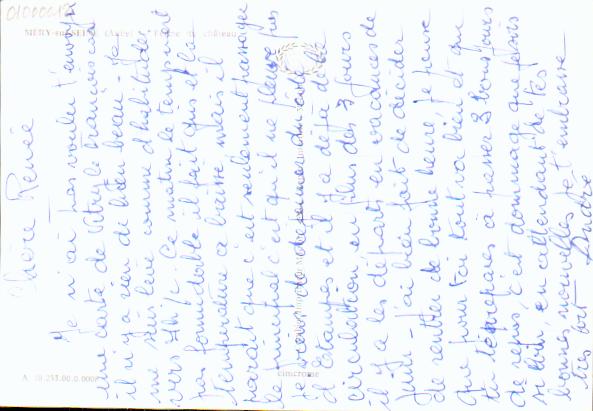 01000612
MÉRY-sur-SEINE (Aube)
du château
Chère Renée
Je n'ai pas voulu t'envoyer
une carte de Vitry le François car
il n'y a rien de bien beau - Je
me suis levé comme d'habitude
vers 7h ½. Ce matin le temps n'est
pas formidable il fait gris et la
température a baissé mais il
paraît que c'est seulement passager
le principal c'est qu'il ne pleuve pas
du côté
d'Etampes et il y a déjà de la
circulation en plus des 3 jours
il y a les départs en vacances de
Juin - j'ai bien fait de décider
de rentrer de bonne heure, je pense
que pour toi tout va bien et que
tu te prépares à passer 3 bons jours
de repos, c'est dommage que je sois
si loin, en attendant de tes
bonnes nouvelles je t'embrasse
très fort André
cinicrome